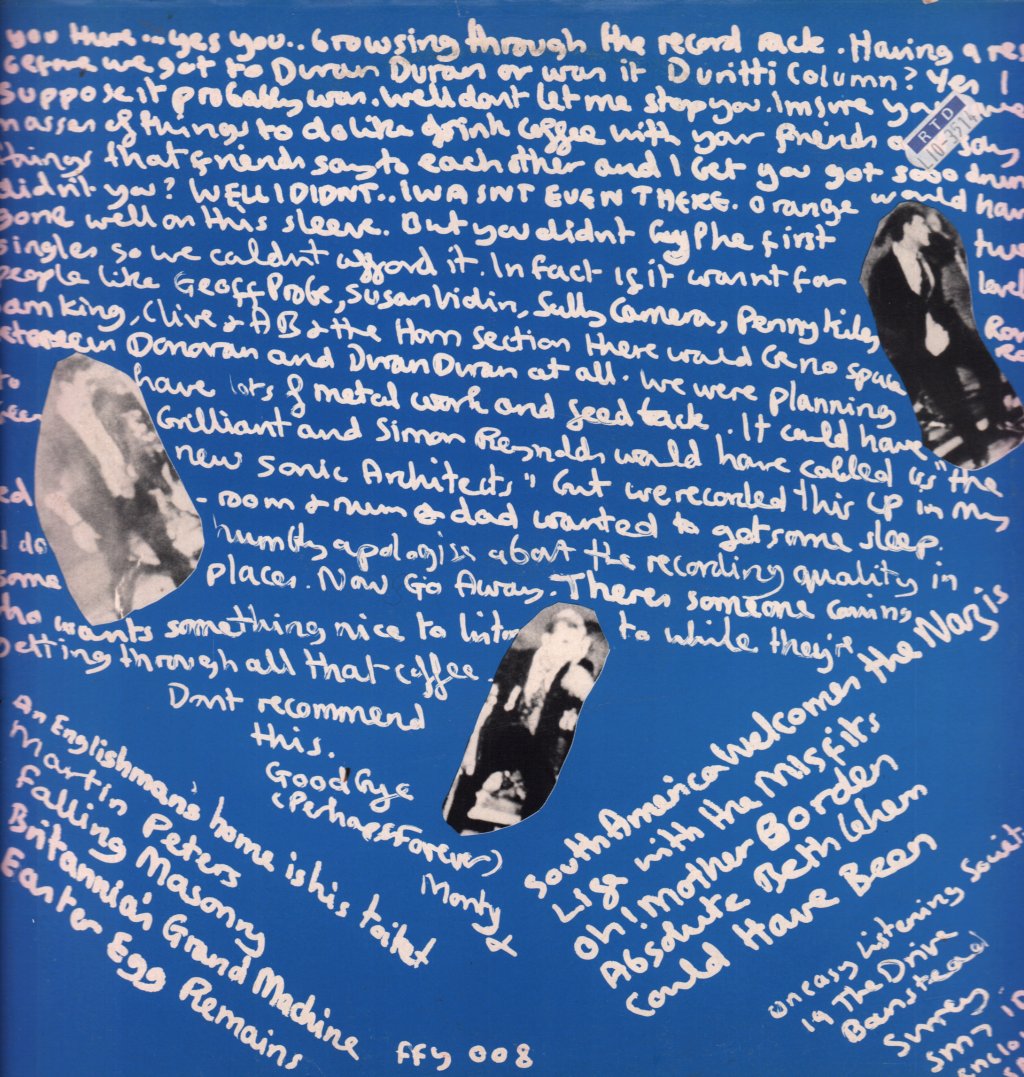 you there... yes you.. browsing through the record rack. Having a res
before we got to Duran Duran or was it Duritti Column? Yes I
suppose it probably was. Well dont let me stop you. Im sure you
masses of things to do like drink coffee with your friends say
things that friends say to each other and I bet you got sooo drun
didn't you? WELL I DIDNT.. I WASNT EVEN THERE. Orange would hav
gone well on this sleeve. But you didnt buy the first two
singles so we couldnt afford it. In fact if it wasnt for level
people like Geoff Probe, Susan Vidin, Sally Camera, Penny Kiley
Sam King, Clive & AB & the Horn Section there would be no space
between Donovan and Duran Duran at all. We were planning
to have lots of metal work and feedback. It could have
been brilliant and Simon Reynolds would have called us "the
new Sonic Architects" but we recorded this LP in my
ed - room & mum & dad wanted to get some sleep.
I do humbly apologise about the recording quality in
some places. Now Go Away. Theres someone coming
who wants something nice to listen to while they're
getting through all that coffee.
Dont recommend
this.
Goodbye
(Perhaps Forever)
Monty
An Englishman's home is his toilet
Martin Peters
Falling Masonry
Britannia's Grand Machine
Easter Egg Remains
South America Welcomes the Nazis
Lisa with the Misfits
Oh! Mother Borden
Absolute Bethlehem
Could Have Been
FFY 008
uneasy Listening Societ
19 The Drive
Banstead
Surrey.
SM7
enclo
RTD